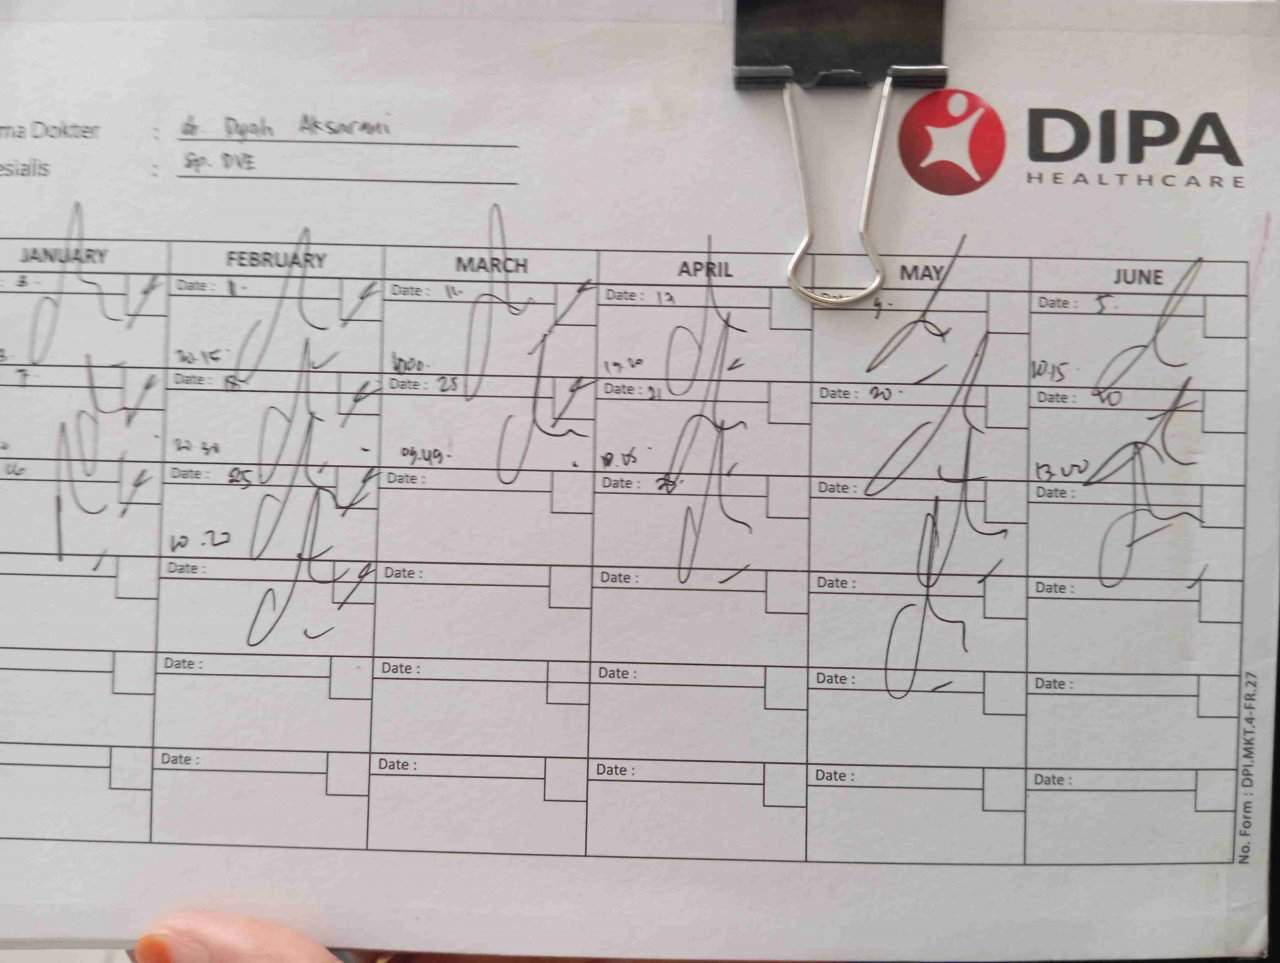 ma Dokter : dr. Dyah Aksarani
esialis : Sp. DVE
DIPA
HEALTHCARE
JANUARY FEBRUARY MARCH APRIL MAY JUNE
: 3 - Date : 1 - Date : Date : 12 Date : 5
20.15 10.15
7 Date : 18 Date : 25 Date : 21 Date : 20 - Date : 20
20.30 09.49 13.00
Date : 25 Date : Date : Date : Date :
10.20
Date : Date : Date : Date : Date :
Date : Date : Date : Date : Date :
Date : Date : Date : Date : Date :
No. Form : DPI.MKT.4-FR.27